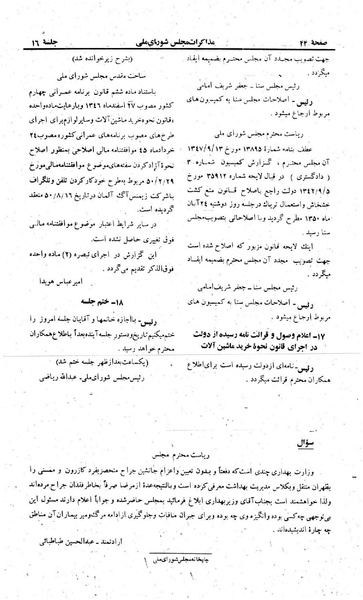 صفحهٔ ۲۴
مذاکرات مجلس شورای ملی
جلسهٔ ۱۶
جهت تصویب مجدد آن مجلس محترم بضمیمه ایفاد
میگردد .
رئیس مجلس سنا ـ جعفر شریف امامی
رئیس ـ اصلاحات مجلس سنا به کمیسیون‌های
مربوط ارجاع میشود .
ریاست محترم مجلس شورای ملی
عطف بنامه شمارهٔ ۱۳۸۹۵ مورخ ۱۳۴۷/۹/۱۳
آن مجلس محترم ، گزارش کمیسیون شماره ۳
( دادگستری ) در قبال لایحه شماره ۳۵۹۱۲
۱۳۴۲/۹/۵ دولت راجع باصلاح قانون منع کشت
خشخاش و استعمال تریاك در جلسه روز دوشنبه ۲۴ آبان
ماه ۱۳۵۰ مطرح گردید و با اصلاحاتی بتصویب مجلس
سنا رسید .
اینك لایحه قانون مزبور که اصلاح شده است
جهت تصویب مجدد آن مجلس محترم بضمیمه ایفاد
میگردد .
رئیس مجلس سنا ـ جعفر شریف امامی
رئیس ـ اصلاحات مجلس سنا به کمیسیون‌های
مربوط ارجاع میشود .
۱۷ـ اعلام وصول و قرائت نامه رسیده از دولت
در اجرای قانون نحوهٔ خرید ماشین آلات
رئیس ـ نامه‌ای از دولت رسیده است برای اطلاع
همکاران محترم قرائت میگردد .
(بشرح زیر خوانده شد)
ساحت مقدس مجلس شورای ملی
باستناد ماده ششم قانون برنامه عمرانی چهارم
کشور مصوب ۲۷ اسفندماه ۱۳۴۶ و بارعایت ماده واحده
قانون نحوه خرید ماشین آلات و سایر لوازم برای اجرای
طرح‌های مصوب برنامه‌های عمرانی کشور مصوب ۲۴
خرداد ماه ۴۵ موافقتنامه مالی اصلاحی بمنظور اصلاح
نحوهٔ آزاد کردن سفته‌های موضوع موافقتنامه مالی مورخ
۵۰/۲/۲۹ مربوط به طرح خودکار کردن تلفن و تلگراف
باشرکت زیمنس آگ آلمان در تاریخ ۵۰/۸/۱۶ منعقد
گردیده است .
در سایر شرایط اعتبار موضوع موافقتنامه مالی
فوق تغییری حاصل نشده است .
مراتب در اجرای تبصره (۲) ماده واحده
فوق‌الذکر تقدیم میگردد .
امیرعباس هویدا
۱۸ـ ختم جلسه
رئیس ـ با اجازه خانمها و آقایان جلسه امروز را
ختم میکنیم تاریخ و دستور جلسه آینده بعداً باطلاع همکاران
محترم خواهد رسید .
(یکساعت بعدازظهر جلسه ختم شد)
رئیس مجلس شورای ملی ـ عبدالله ریاضی
سؤال
ریاست محترم مجلس
وزارت بهداری چندی است که دفعتاً و بدون تعیین و اعزام جانشین جراح منحصر بفرد کازرون و ممسنی را
بطهران منتقل و بکلاس مدیریت بهداشت معرفی کرده است و بالنتیجه عدهٔ از مرضا صرفاً بخاطر فقدان جراح مرده‌اند
ولذا خواهشمند است بجناب آقای وزیر بهداری ابلاغ فرمائید بمجلس حاضر شده و جواباً اعلام دارند مسئول این
بی‌توجهی چه کسی بوده و انگیزه وی چه بوده و برای جبران مافات و جلوگیری از ادامه مرگ و میر بیماران آن مناطق
چه کرده‌اند
ارادتمند ـ عبدالحسین طباطبائی
چاپخانه مجلس شورای ملی